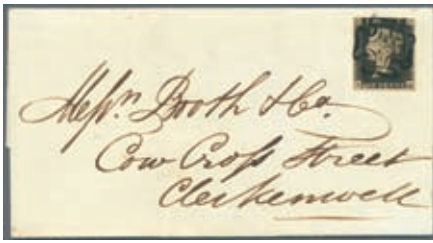 Messrs. Booth & Co.
Cow Cross Street
Clerkenwell